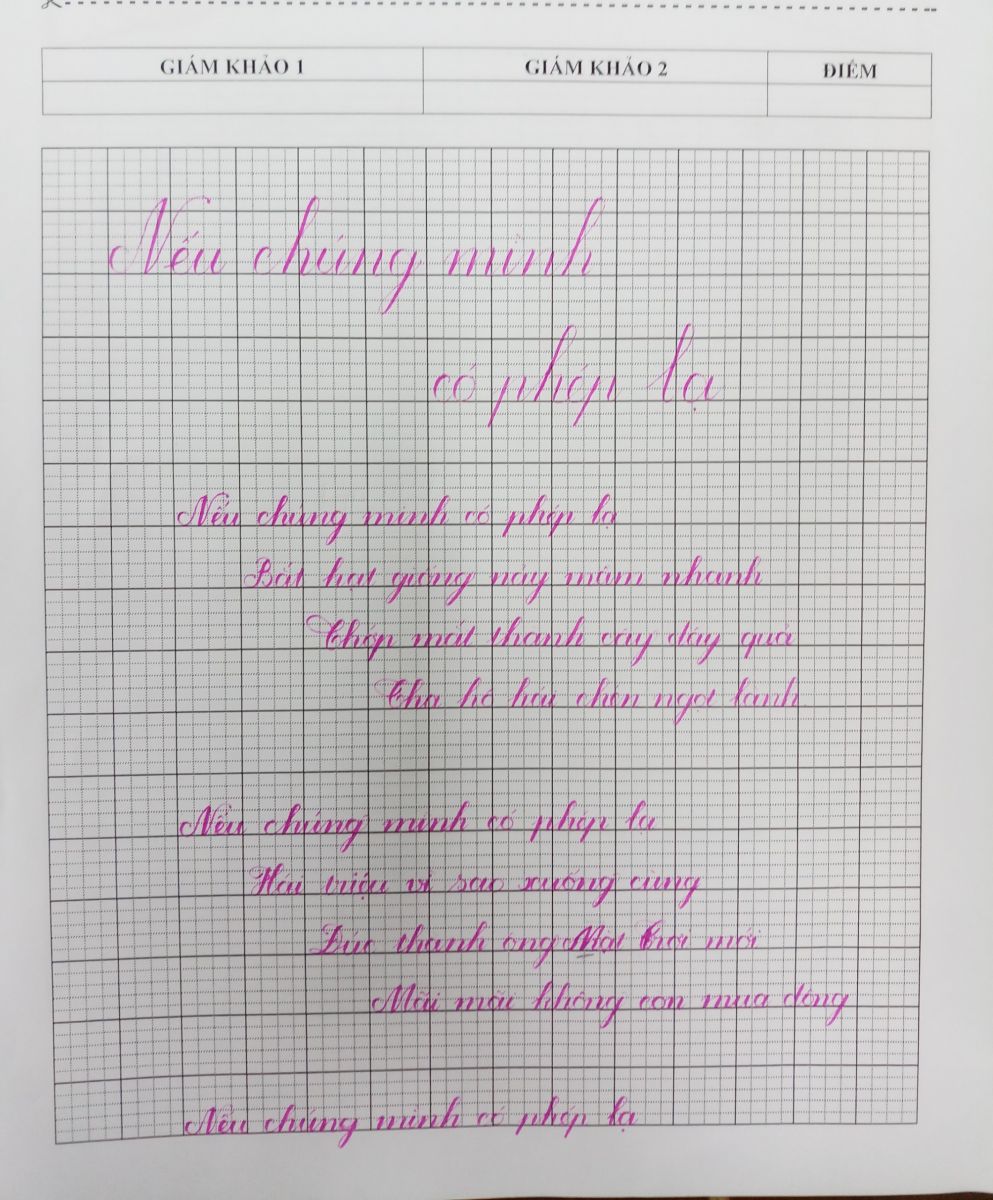 GIÁM KHẢO 1 GIÁM KHẢO 2 ĐIỂM
Nếu chúng mình
có phép lạ
Nếu chúng mình có phép lạ
Bắt hạt giống nảy mầm nhanh
Chớp mắt thành cây đầy quả
Tha hồ hái chén ngọt lành
Nếu chúng mình có phép lạ
Hái triệu vì sao xuống cùng
Đúc thành ông Mặt trời mới
Mãi mãi không còn mùa đông
Nếu chúng mình có phép lạ